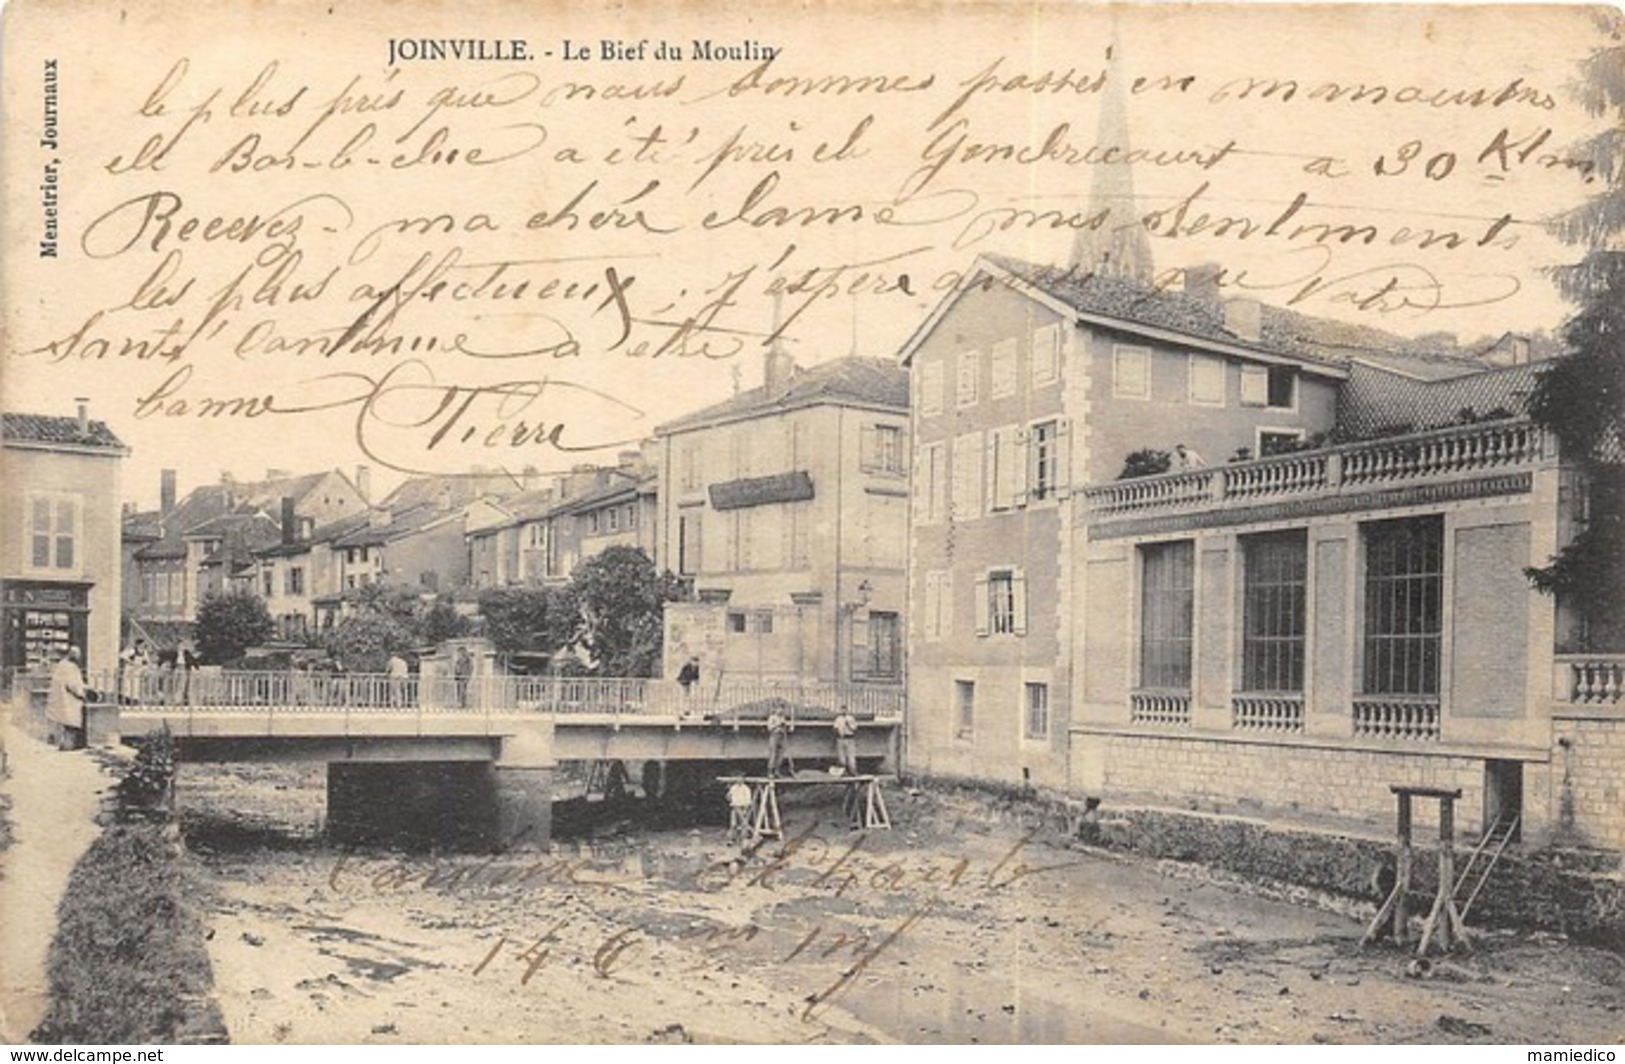 JOINVILLE. - Le Bief du Moulin
Menetrier, Journaux
le plus près que nous sommes passés en manoeuvres
de Bar-le-duc a été près de Gondrecourt a 30 Klm.
Recevez ma chére dame mes sentiments
les plus affectueux. J'espère aussi que votre
Santé Continue a être
bonne Pierre
Cantine Straub
146me inf
www.delcampe.net
mamiedico